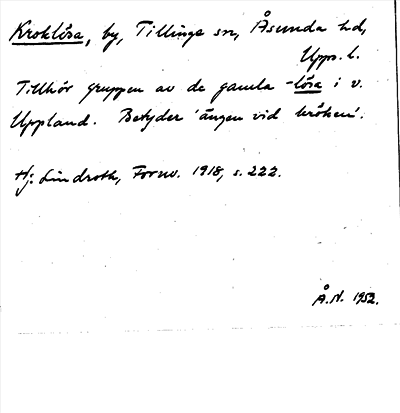 Kroklösa, by, Tillinge sn, Åsunda hd,
Upps. l.
Tillhör gruppen av de gamla -lösa i v.
Uppland. Betyder 'ängen vid kröken'.
Hj. Lindroth, Fornv. 1918, s. 222.
Å.N. 1952.